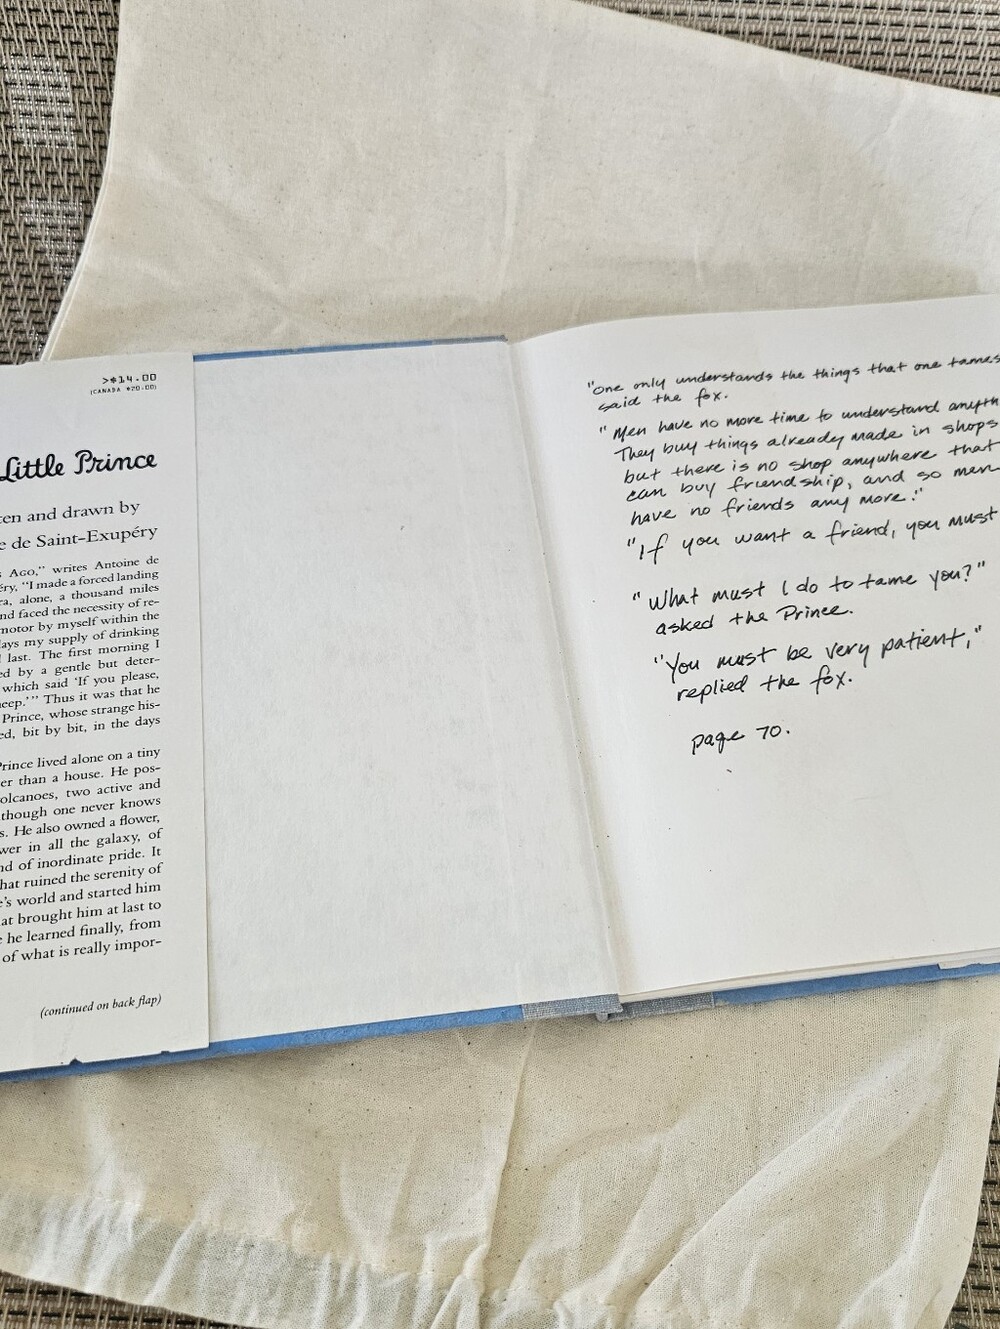 >$14.00
(CANADA $20.00)
Little Prince
ten and drawn by
e de Saint-Exupéry
s Ago," writes Antoine de
éry, "I made a forced landing
ra, alone, a thousand miles
nd faced the necessity of re-
motor by myself within the
lays my supply of drinking
l last. The first morning I
ed by a gentle but deter-
which said 'If you please,
heep.'" Thus it was that he
Prince, whose strange his-
ed, bit by bit, in the days
Prince lived alone on a tiny
er than a house. He pos-
olcanoes, two active and
though one never knows
s. He also owned a flower,
wer in all the galaxy, of
nd of inordinate pride. It
hat ruined the serenity of
e's world and started him
at brought him at last to
e he learned finally, from
of what is really impor-
(continued on back flap)
"One only understands the things that one tames
said the fox.
"Men have no more time to understand anyth
They buy things already made in shops
but there is no shop anywhere that
can buy friendship, and so men
have no friends any more."
"If you want a friend, you must
"What must I do to tame you?"
asked the Prince.
"You must be very patient,"
replied the fox.
page 70.